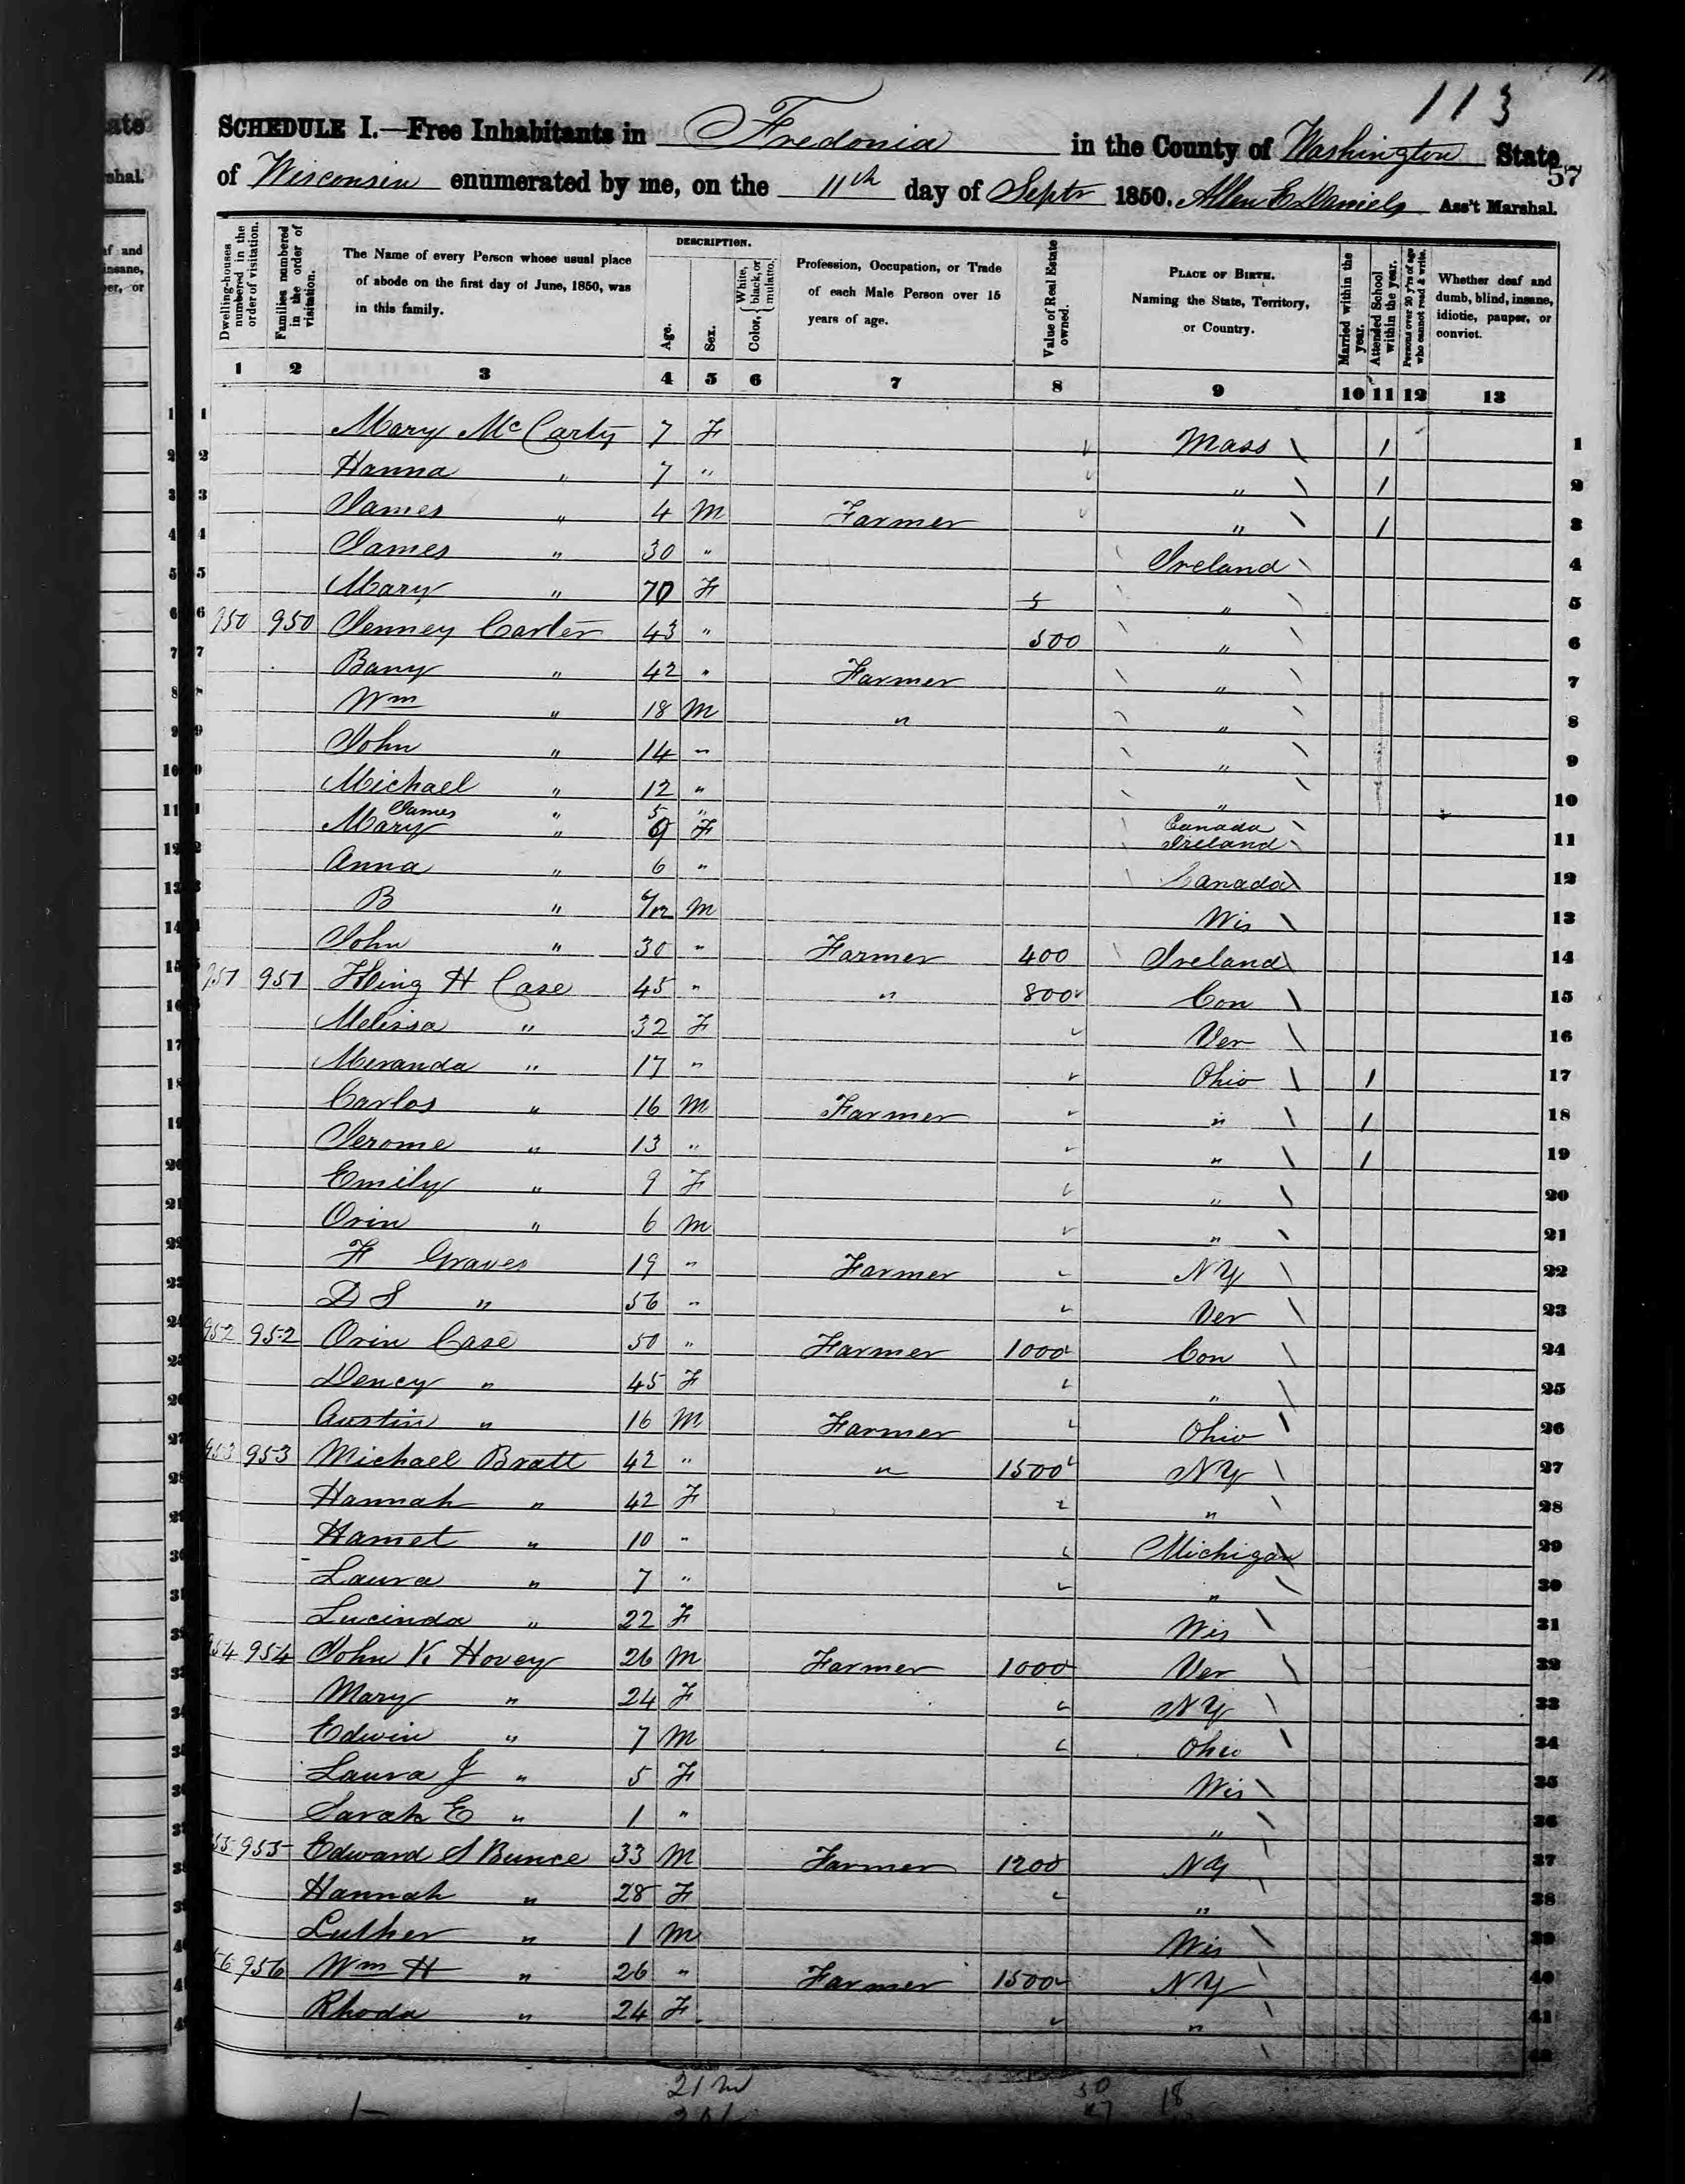 113
SCHEDULE I.—Free Inhabitants in Fredonia in the County of Washington State
57
of Wisconsin enumerated by me, on the 11th day of Septr 1850. Allen E Daniels Ass't Marshal.
Dwelling-houses numbered in the order of visitation.
Families numbered in the order of visitation.
The Name of every Person whose usual place of abode on the first day of June, 1850, was in this family.
DESCRIPTION.
Age.
Sex.
Color, { White, black, or mulatto.
Profession, Occupation, or Trade of each Male Person over 15 years of age.
Value of Real Estate owned.
PLACE OF BIRTH. Naming the State, Territory, or Country.
Married within the year.
Attended School within the year.
Persons over 20 y'rs of age who cannot read & write.
Whether deaf and dumb, blind, insane, idiotic, pauper, or convict.
1 2 3 4 5 6 7 8 9 10 11 12 13
1 Mary McCarty 7 F Mass / 1
2 Hanna " 7 " " / 2
3 James " 4 M Farmer " / 3
4 James " 30 " Ireland 4
5 Mary " 70 F " 5
6 950 950 Jenney Carter 43 " 500 " 6
7 Bany " 42 " Farmer " 7
8 Wm " 18 M " " 8
9 John " 14 " " 9
10 Michael " 12 " " 10
James " 5 " Canada
11 Mary " 9 F Ireland 11
12 Anna " 6 " Canada 12
13 B " 6/12 M Wis 13
14 John " 30 " Farmer 400 Ireland 14
15 951 951 H Case 45 " " 800 Con 15
16 Melissa " 32 F Ver 16
17 Meranda " 17 " Ohio / 17
18 Carlos " 16 M Farmer " / 18
19 Jerome " 13 " " / 19
20 Emily " 9 F " 20
21 Orin " 6 M " 21
22 H Graves 19 " Farmer NY 22
23 D S " 56 " Ver 23
24 952 952 Orin Case 50 " Farmer 1000 Con 24
25 Dency " 45 F " 25
26 Austin " 16 M Farmer Ohio 26
27 953 953 Michael Bratt 42 " " 1500 NY 27
28 Hannah " 42 F " 28
29 Hamet " 10 " Michigan 29
30 Laura " 7 " " 30
31 Lucinda " 22 F Wis 31
954 954 John K Hovey 26 M Farmer 1000 Ver 32
Mary " 24 F NY 33
Edwin " 7 M Ohio 34
Laura J " 5 F Wis 35
Sarah E " 1 " " 36
955 Edward S Bunce 33 M Farmer 1200 NY 37
Hannah " 28 F " 38
Luther " 1 M Wis 39
956 Wm H " 26 " Farmer 1500 NY 40
Rhoda " 24 F " 41
42
21 M
18